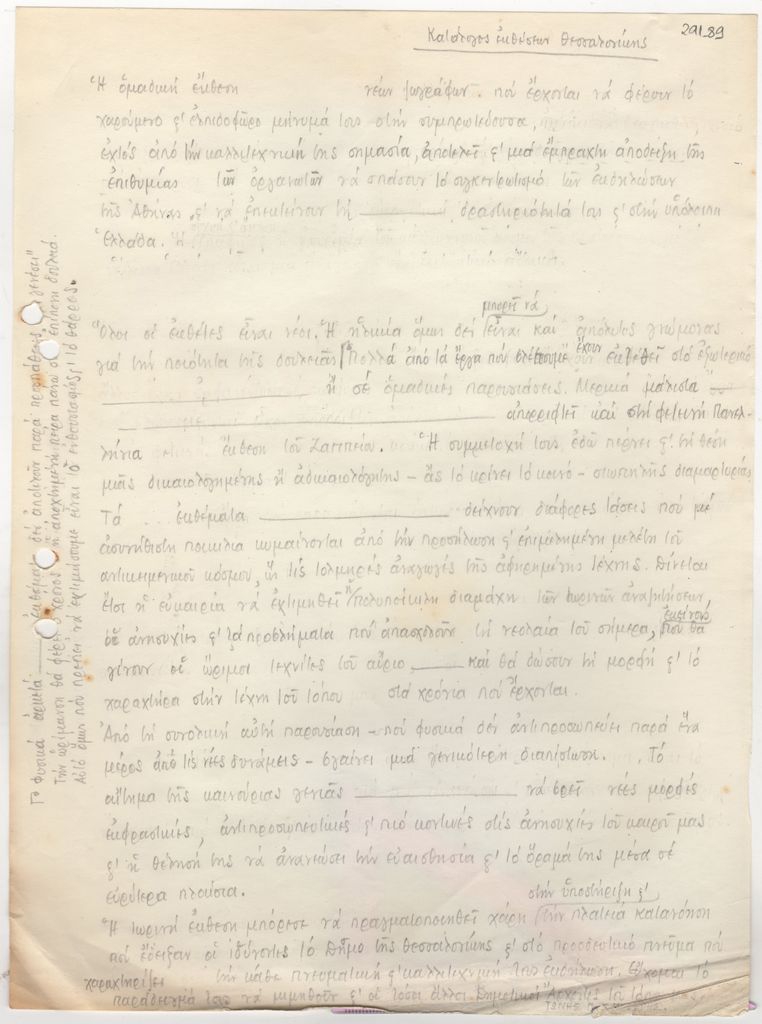 Κατάλογος ἐκθέσεων Θεσσαλονίκης
291.89
Ἡ ὁμαδική ἔκθεση νέων ζωγράφων πού ἔρχονται νά φέρουν τό
χαρούμενο ϗ ἐλπιδοφόρο μήνυμά τους στήν συμπρωτεύουσα,
ἐκτός ἀπό τήν καλλιτεχνική της σημασία, ἀποτελεῖ ϗ μιά ἔμπρακτη ἀπόδειξη τῆς
ἐπιθυμίας τῶν ὀργανωτῶν νά σπάσουν τό συγκεντρωτισμό τῶν ἐκδηλώσεων
τῆς Ἀθήνας ϗ νά ἐπεκτείνουν τή δραστηριότητά τους ϗ στήν ὑπόλοιπη
Ἑλλάδα. Ἡ
μπορεῖ νά
Ὅλοι οἱ ἐκθέτες εἶναι νέοι. Ἡ ἡλικία ὅμως δέν εἶναι καί ἀπόλυτος γνώμονας
γιά τήν ποιότητα τῆς δουλειᾶς. Πολλά ἀπό τά ἔργα πού βλέπουμε ἔχουν ἐκτεθεῖ στό ἐξωτερικό
ἤ σέ ὁμαδικές παρουσιάσεις. Μερικά μάλιστα
ἀπορριφτεῖ καί στή φετεινή Πανελ-
λήνια ἔκθεση τοῦ Ζαππείου. Ἡ συμμετοχή τους ἐδῶ παίρνει ϗ τή θέση
μιᾶς δικαιολογημένης ἤ ἀδικαιολόγητης – ἄς τό κρίνει τό κοινό – σιωπηλῆς διαμαρτυρίας
Τά ἐκθέματα δείχνουν διάφορες τάσεις πού μέ
ἀσυνήθιστη ποικιλία κυμαίνονται ἀπό τήν προσήλωση ϗ ἐπιμελημένη μελέτη τοῦ
ἀντικειμενικοῦ κόσμου, ὥς τίς τολμηρές ἀναγωγές τῆς ἀφηρημένης τέχνης. Δίνεται
ἔτσι ἡ εὐκαιρία νά ἐκτιμηθεῖ ἡ πολυποίκιλη διαμάχη τῶν τωρινῶν ἀναζητήσεων,
οἱ ἀνησυχίες ϗ τά προβλήματα πού ἀπασχολοῦν τή νεολαία τοῦ σήμερα, ἐκείνους πού θά
γίνουν οἱ ὥριμοι τεχνίτες τοῦ αὔριο, καί θά δώσουν τή μορφή ϗ τό
χαρακτήρα στήν τέχνη τοῦ τόπου στά χρόνια πού ἔρχονται.
Ἀπό τή συνολική αὐτή παρουσίαση – πού φυσικά δέν ἀντιπροσωπεύει παρά ἕνα
μέρος ἀπό τίς νέες δυνάμεις – βγαίνει μιά γενικότερη διαπίστωση. Τό
αἴτημα τῆς καινούριας γενιᾶς νά βρεῖ νέες μορφές
ἐκφραστικές, ἀντιπροσωπευτικές ϗ πιό κοντινές στίς ἀνησυχίες τοῦ καιροῦ μας
ϗ ἡ θέλησή της νά ἀνανεώσει τήν εὐαισθησία ϗ τό ὅραμά της μέσα σέ
εὐρύτερα πλαίσια.
στήν ὑποστήριξη ϗ
Ἡ τωρινή ἔκθεση μπόρεσε νά πραγματοποιηθεῖ χάρη στήν πλατειά κατανόηση
πού ἔδειξαν οἱ ἰθύνοντες τό Δῆμο τῆς Θεσσαλονίκης ϗ στό προοδευτικό πνεῦμα πού
χαρακτηρίζει τήν κάθε πνευματική ϗ καλλιτεχνική τους ἐκδήλωση. Εὔχομαι τό
παράδειγμά τους νά μιμηθοῦν ϗ οἱ τόσοι ἄλλοι Δημοτικοί Ἄρχοντες τοῦ τόπου μας.
Γ° Φυσικά ἀρκετά ἐκθέματα δέν ἀποτελοῦν παρά προσπάθειες
Τήν ὡρίμανση θά φέρει ὁ χρόνος ϗ ἡ ἀποχτημένη πείρα πάνω στήν ἐπίπονη δουλειά.
Αὐτό ὅμως πού πρέπει νά ἐχτιμήσουμε εἶναι ὁ ἐνθουσιασμός ϗ τό θάρρος.